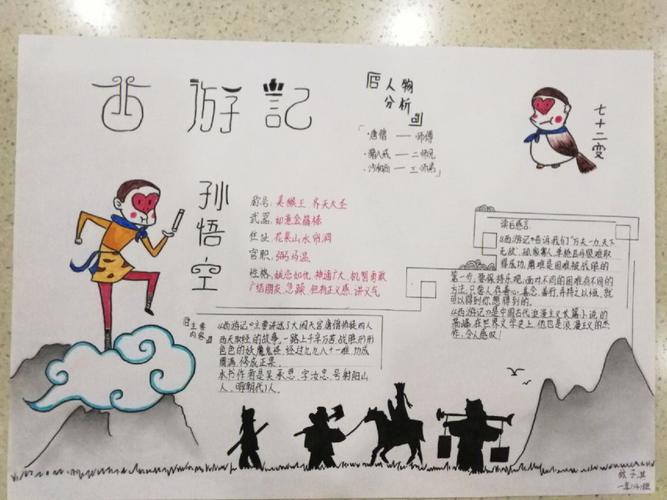 西游記
人物
分析
·唐僧 — 师傅
·猪八戒 — 二师兄
·沙和尚 — 三师弟
七十二变
孙悟空
美猴王 齐天大圣
武器: 如意金箍棒
住址: 花果山水帘洞
官职: 弼马温
性格: 嫉恶如仇 神通广大 机智勇敢
广结朋友 急躁 但有正义感 讲义气
主要
内容
《西游记》主要讲述了大闹天宫唐僧师徒四人
西天取经的故事,一路上千辛万苦,战胜形形
色色的妖魔鬼怪,经过九九八十一难,功成
圆满,修成正果。
本书作者是吴承恩,字汝忠,号射阳山
人,明朝代人。
读后感言
《西游记》告诉我们"万夫一力,天下
无敌",
得成功,磨难是困难被战胜的
第一步,要保持乐观,面对不同的困难有不同的
方法,只要人有善心、善念、善行,并持之以恒,就
可以得到你想得到的。
《西游记》是中国古代浪漫主义长篇小说的
高峰,在世界文学史上,他也是浪漫主义的杰
作,令人感叹!